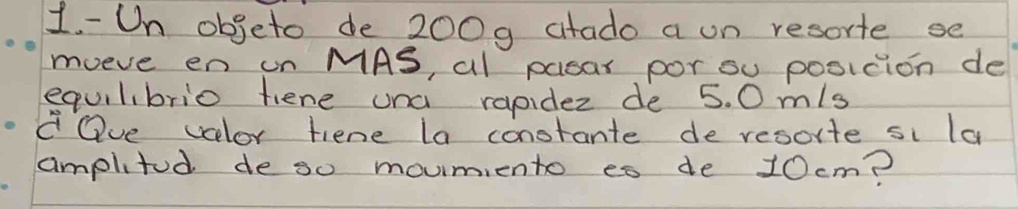 1.- Un objeto de 200g atado a un resorte se
mueve en un MAS, al pasar por su posición de
equilibrio tiene una rapidez de 5.0 m/s
¿Que valor tiene la constante de resorte si la
amplitud de so movimiento es de 10cm?